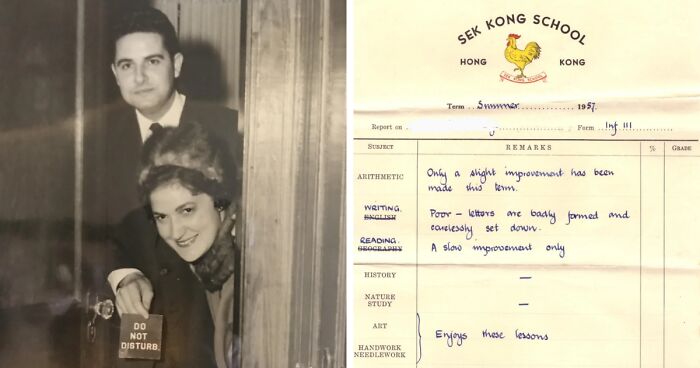 DO
NOT
DISTURB.
SEK KONG SCHOOL
HONG KONG
SEK KONG SCHOOL
Term Summer 1957.
Report on Form Inf III
SUBJECT REMARKS % GRADE
ARITHMETIC Only a slight improvement has been
made this term.
WRITING. Poor – letters are badly formed and
ENGLISH carelessly set down.
READING. A slow improvement only
GEOGRAPHY
HISTORY —
NATURE
STUDY —
ART
Enjoys these lessons
HANDWORK
NEEDLEWORK